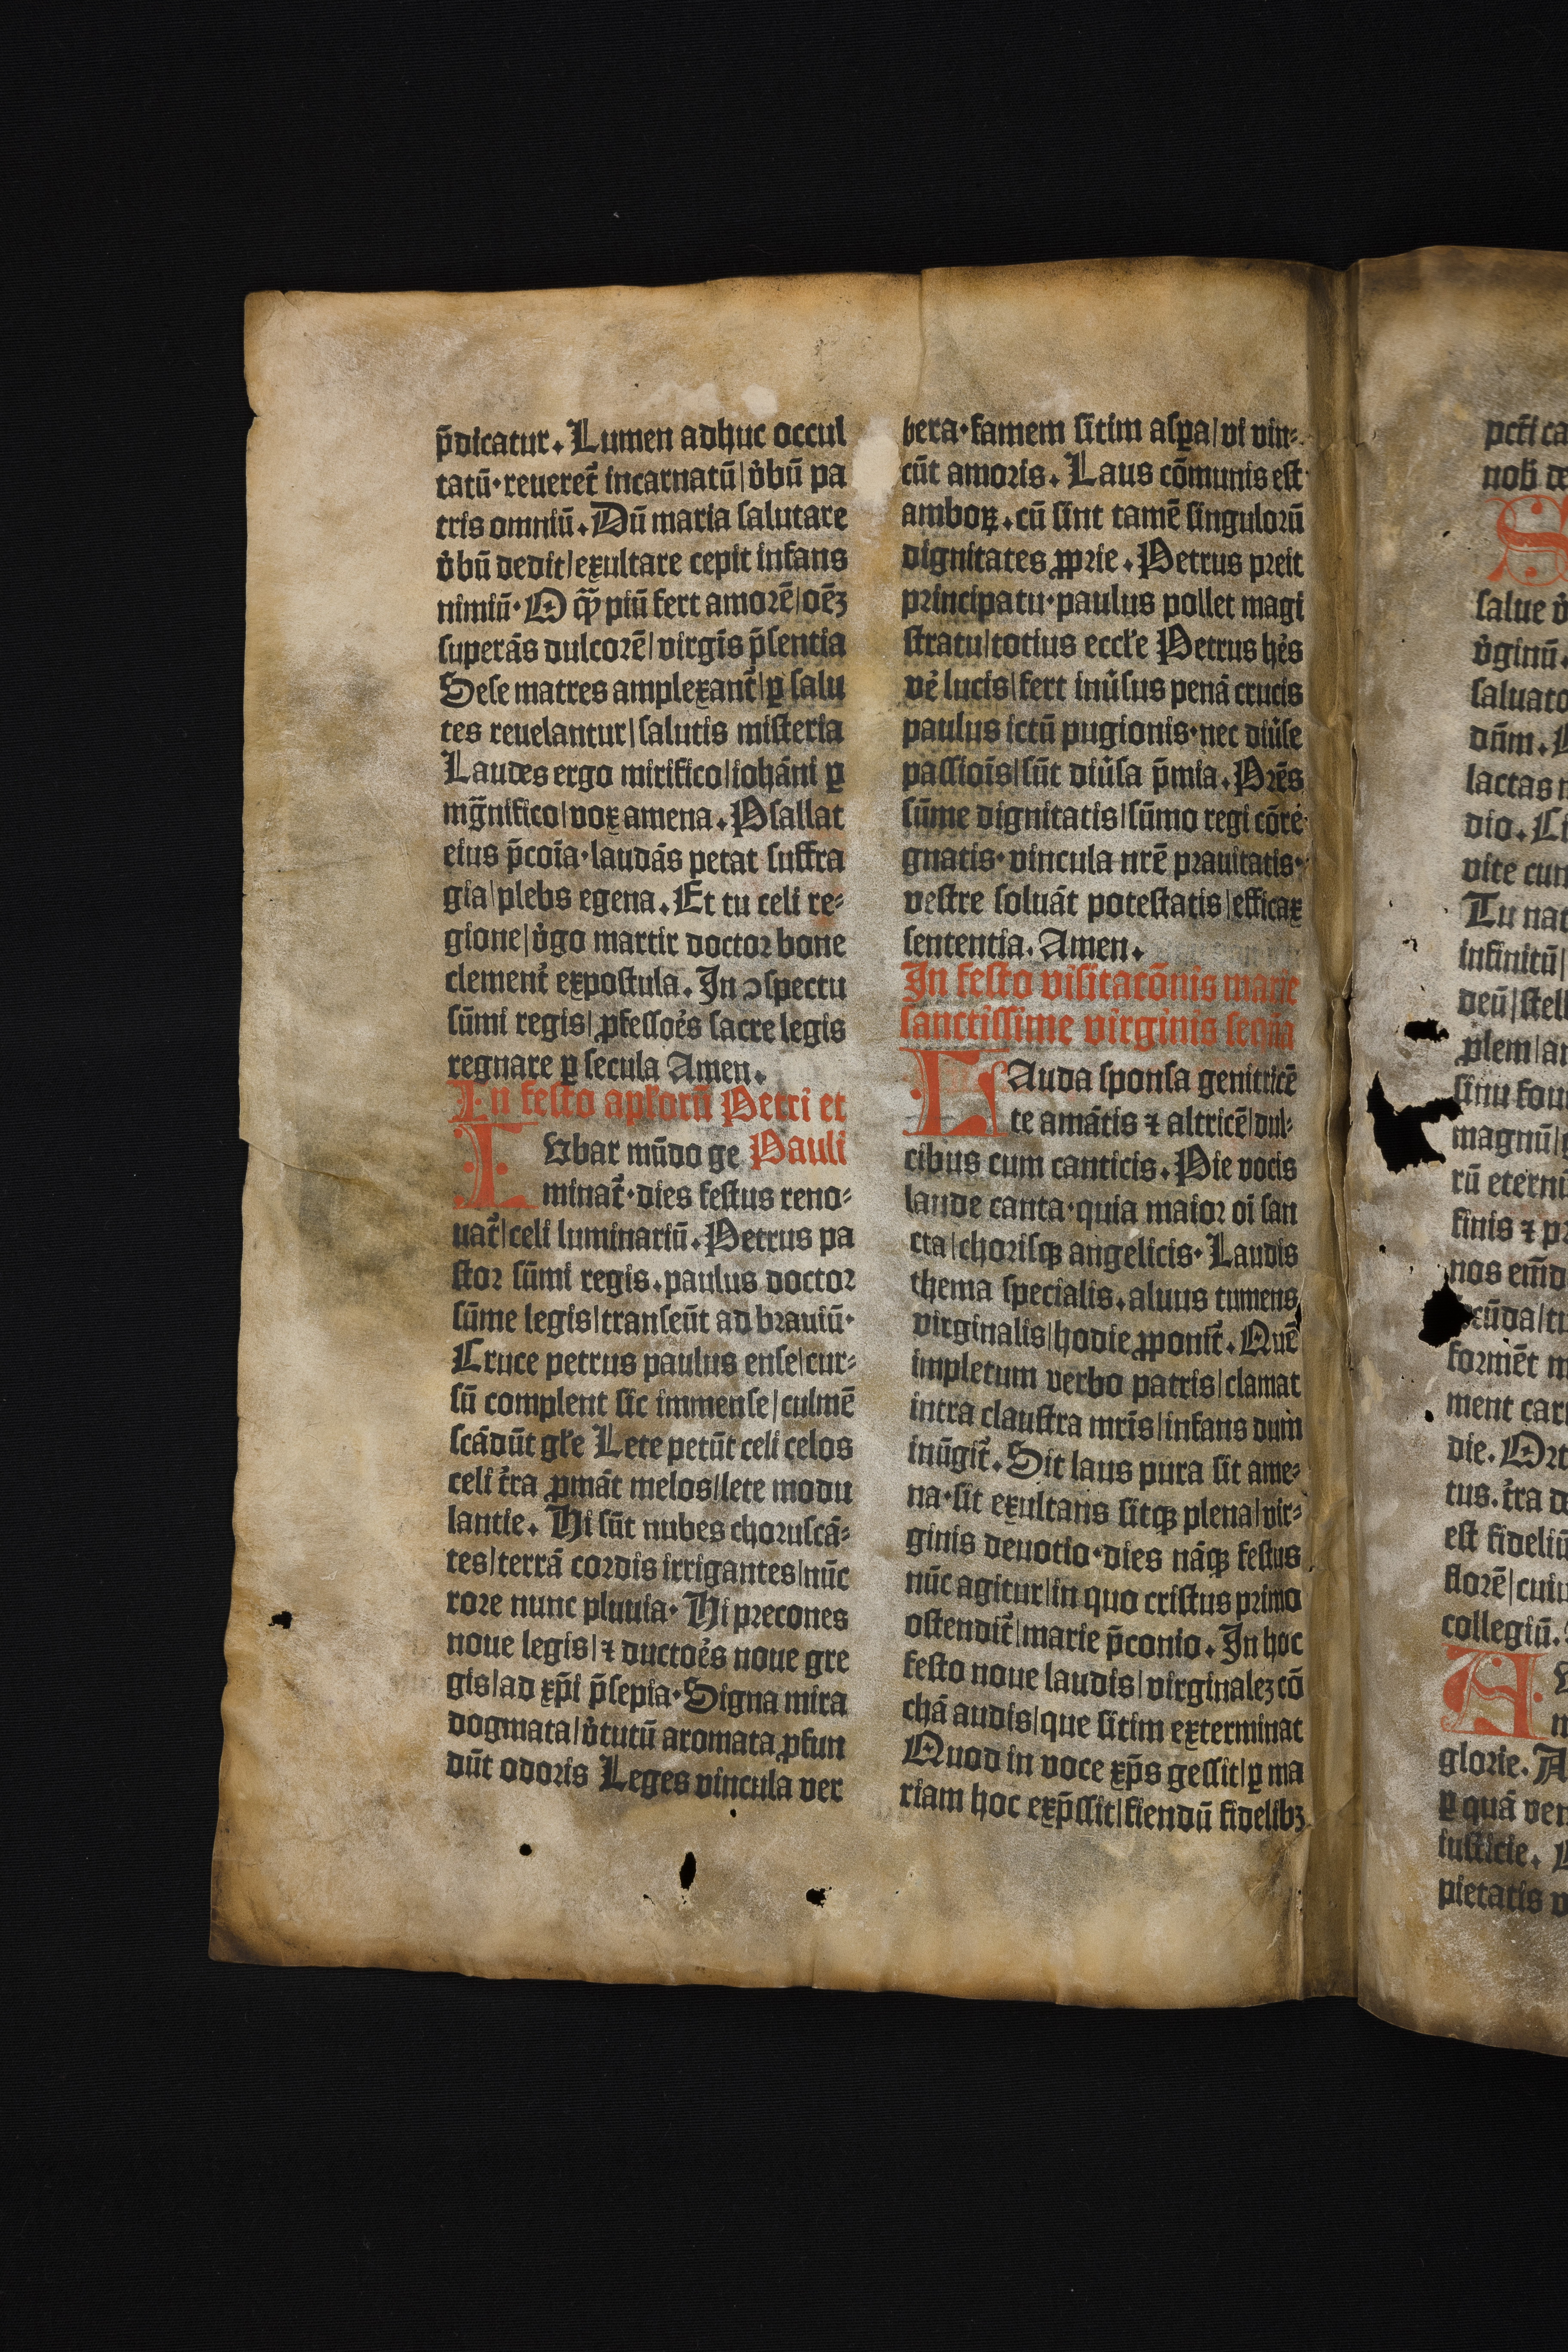 p̄dicatur. Lumen adhuc occul
tatū·reueret᷑ incarnatū|v̓bū pa
tris omniū. Dū maria salutare
v̓bū dedit|exultare cepit infans
nimiū· O q̄ȝ piū fert amorē|oēȝ
superās dulcorē|virgīs p̄sentia
Sese matres amplexant᷑|ꝑ salu
tes reuelantur|salutis misteria
Laudes ergo mirifico|iohāni ꝑ
mg̅nifico|vox amena. Psallat
eius p̄coīa·laudās petat suffra
gia|plebs egena. Et tu celi re⸗
gione|v̓go martir doctor bone
clement᷑ expostula. In ↄspectu
sūmi regis|ꝓfessoe̓s sacre legis
regnare ꝑ secula Amen.
In festo apl̓orū Petri et
Iubar mūdo ge Pauli
minat᷑·dies festus reno⸗
uat᷑|celi luminariū. Petrus pa
stor sūmi regis.paulus doctor
sūme legis|transeūt ad brauiū·
Cruce petrus paulus ense|cur⸗
sū complent sic immense|culmē
scādūt gl̓e Lete petūt celi celos
celi t̓ra ꝓmāt melos|lete modu
lantie. Hi sūt nubes choruscā⸗
tes|terrā cordis irrigantes|nūc
rore nunc pluuia· Hi precones
noue legis|⁊ ductoe̓s noue gre
gis|ad xp̄i p̄sepia·Signa mira
dogmata|v̓tutū aromata ꝓfun
dūt odoris Leges vincula ver
bera·famem sitim asꝑa|vi vin⸗
cūt amoris. Laus cōmunis est·
amboꝝ.cū sint tamē singulorū
dignitates ꝓprie. Petrus preit
principatu·paulus pollet magi
stratu|totius eccl̓e Petrus he̓s
ve̓ lucis|fert inu̓sus penā crucis
paulus ictū pugionis·nec diu̓se
passiois̄|sūt diu̓sa p̄mia. Prēs
sūme dignitatis|sūmo regi cōre⸗
gnatis·vincula nrē prauitatis·
vestre soluāt potestatis|efficax
sententia. Amen.
In festo visitacōnis marie
sanctissime virginis seq̄ia
LAuda sponsa genitricē
te amātis ⁊ altricē|dul⸗
cibus cum canticis. Pie vocis
laude canta·quia maior oi san
cta|chorisqꝫ angelicis· Laudis
thema specialis.aluus tumens
virginalis|hodie ꝓponit᷑. Quē
impletum verbo patris|clamat
intra claustra mrīs|infans dum
inūgit᷑. Sit laus pura sit ame⸗
na·sit exultans sitqꝫ plena|vir⸗
ginis deuotio·dies nāqꝫ festus
nūc agitur|in quo cristus primo
ostendit᷑|marie p̄conio. In hoc
festo noue laudis|virginaleȝ cō
chā audis|que sitim exterminat
Quod in voce xp̄s gessit|ꝑ ma
riam hoc exp̄ssit|fiendū fidelibȝ
nob̓ de
S
salue v̓
v̓ginū.
saluato
dūm.
lactas
dio.
vite cum
Tu nat
infinitū|
deū|stell
ꝓlem|an
sinu fou
magnū|
rū eterni
finis ⁊ pr
nos
formēt
ment car
die. Ort
tus.t̓ra de
est fideliū
florē|cuiu
collegiū.
A
glorie. A
ꝑ quā ven
iusticie.
pietatis v